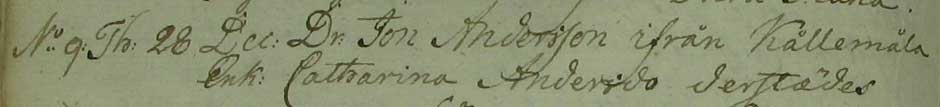 No 9: Th: 28 Dec: Dr: Jon Andersson ifrån Kållemåla
Enk: Catharina Andersdo derstædes